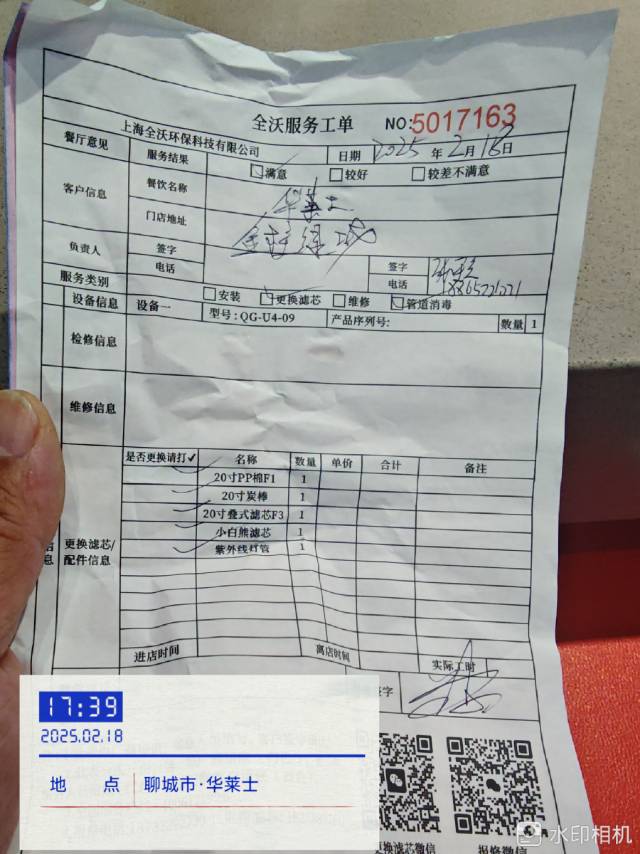 全沃服务工单 NO:5017163
上海全沃环保科技有限公司 日期 2025 年 2 月 18 日
餐厅意见 服务结果 满意 较好 较差不满意
客户信息 餐饮名称 华莱士
门店地址
负责人 签字 签字
电话 电话
服务类别 安装 更换滤芯 维修 管道消毒
设备信息 设备一 型号:QG-U4-09 产品序列号: 数量 1
检修信息
维修信息
是否更换请打✓ 名称 数量 单价 合计 备注
20寸PP棉F1 1
20寸炭棒 1
20寸叠式滤芯F3 1
小白熊滤芯 1
紫外线灯管 1
更换滤芯/
配件信息
息
进店时间 离店时间 实际工时
签字
17:39
2025.02.18
地 点 聊城市·华莱士
更换滤芯微信 报修微信
水印相机